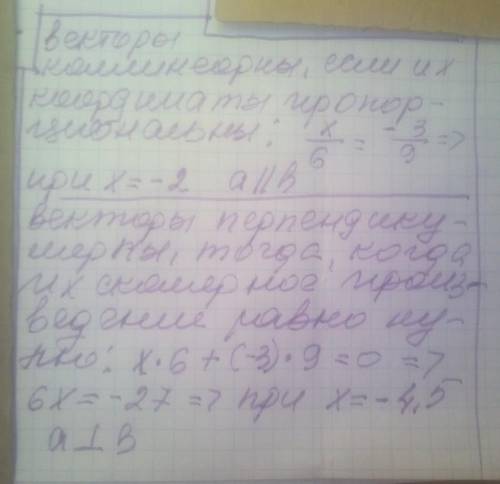 векторы
коллинеарны, если их
координаты пропор-
циональны: x/6 = -3/9 =>
при x = -2 a || b
векторы перпендику-
лярны, тогда, когда
их скалярное произ-
ведение равно ну-
лю: x · 6 + (-3) · 9 = 0 =>
6x = -27 => при x = -4,5
a ⊥ b